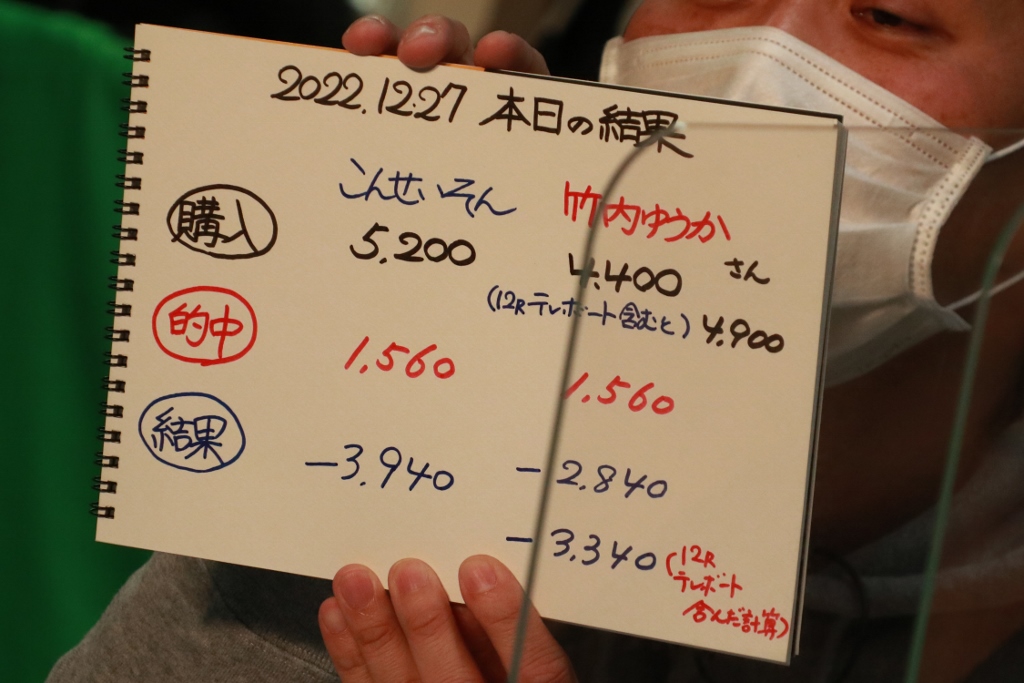 2022.12.27 本日の結果
こんせいそん 竹内ゆうか さん
購入 5,200 4,400
(12Rテレボート含むと) 4,900
的中 1,560 1,560
結果 -3,940 -2,840
-3,340 (12R
テレボート
含んだ計算)